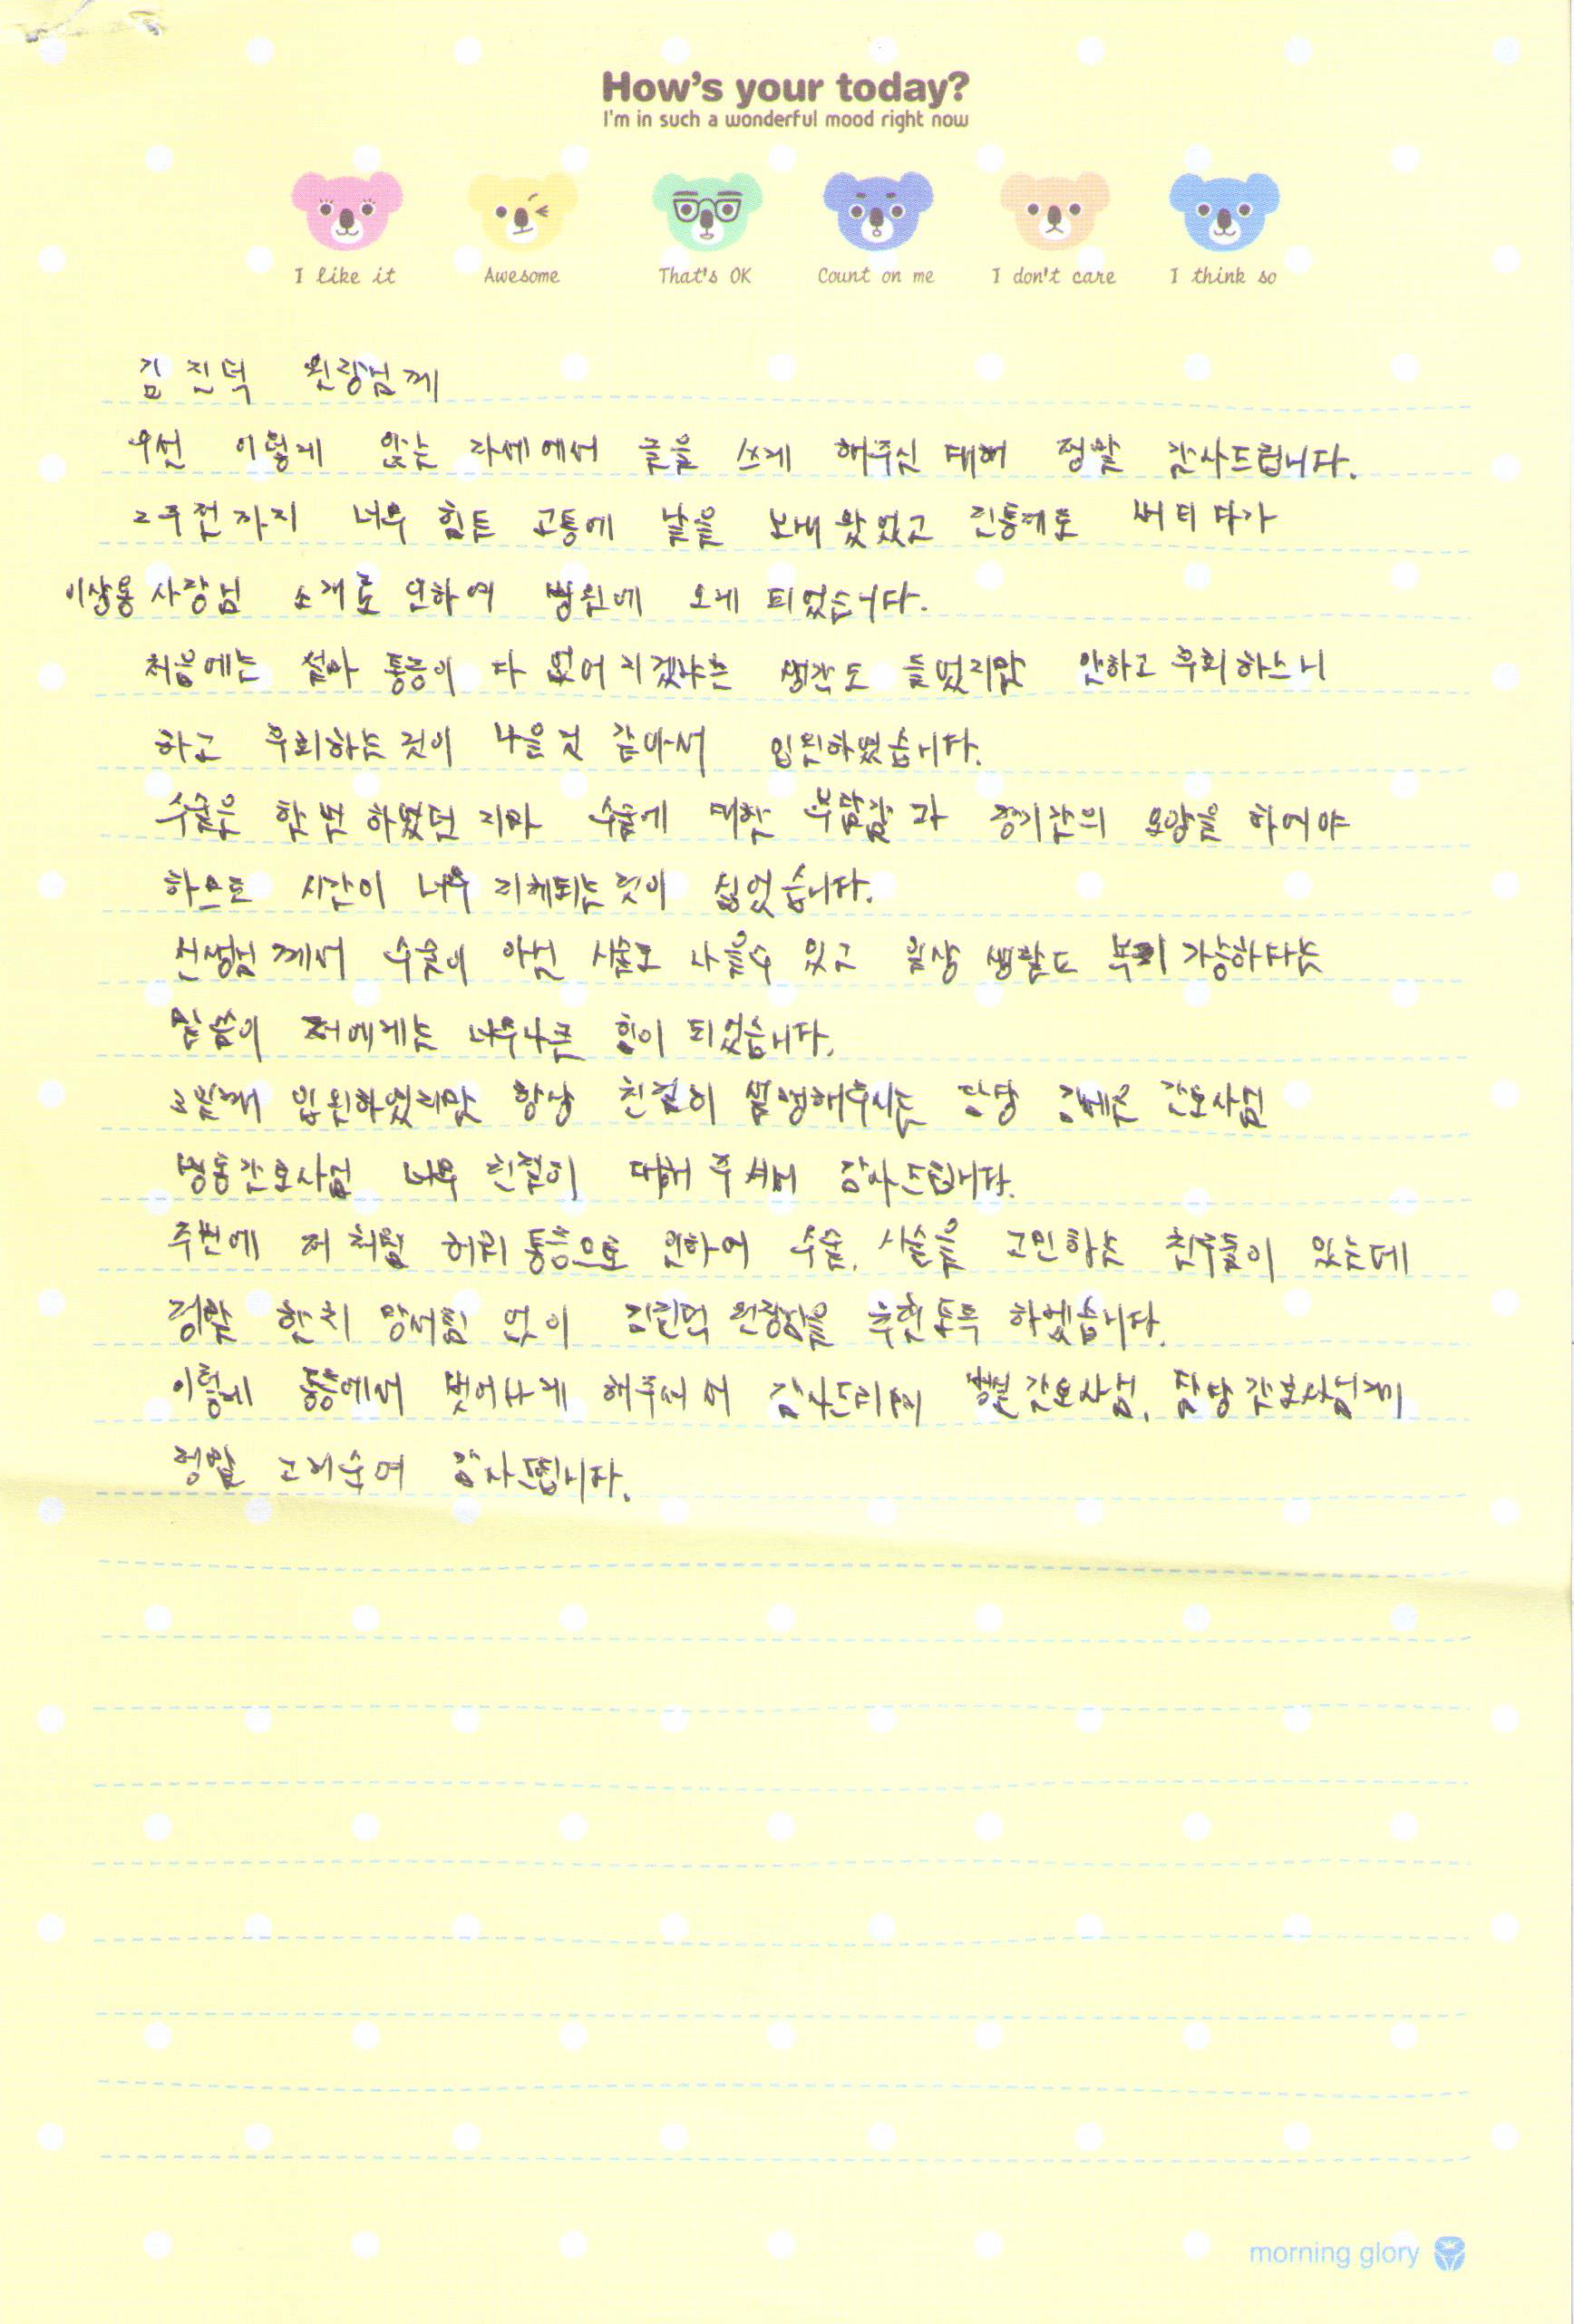 How's your today?
I'm in such a wonderful mood right now
I like it Awesome That's OK Count on me I don't care I think so
김진덕 원장님께
우선 이렇게 앉는 자세에서 글을 쓰게 해주신 대해 정말 감사드립니다.
2주전까지 너무 힘든 고통에 날을 보내왔었고 진통제로 버티다가
이상용 사장님 소개로 인하여 병원에 오게 되었습니다.
처음에는 설마 통증이 다 없어지겠냐는 생각도 들었지만 안하고 후회하느니
하고 후회하는것이 나을것 같아서 입원하였습니다.
수술은 한번 하였던 지라 수술에 대한 부담감과 장기간의 요양을 하여야
하므로 시간이 너무 지체되는것이 싫었습니다.
선생님께서 수술이 아닌 시술로 나을수 있고 일상 생활도 복귀 가능하다는
말씀이 저에게는 너무나큰 힘이 되었습니다.
2일째 입원하였지만 항상 친절히 설명해주시는 담당 간호사님
병동간호사님 너무 친절히 대해 주셔서 감사드립니다.
주변에 저처럼 허리통증으로 인하여 수술, 시술을 고민하는 친구들이 있는데
정말 한치 망설임 없이 김진덕 원장님을 추천토록 하겠습니다.
이렇게 통증에서 벗어나게 해주셔서 감사드리며 병실간호사님, 담당간호사님께
정말 고개숙여 감사드립니다.
morning glory